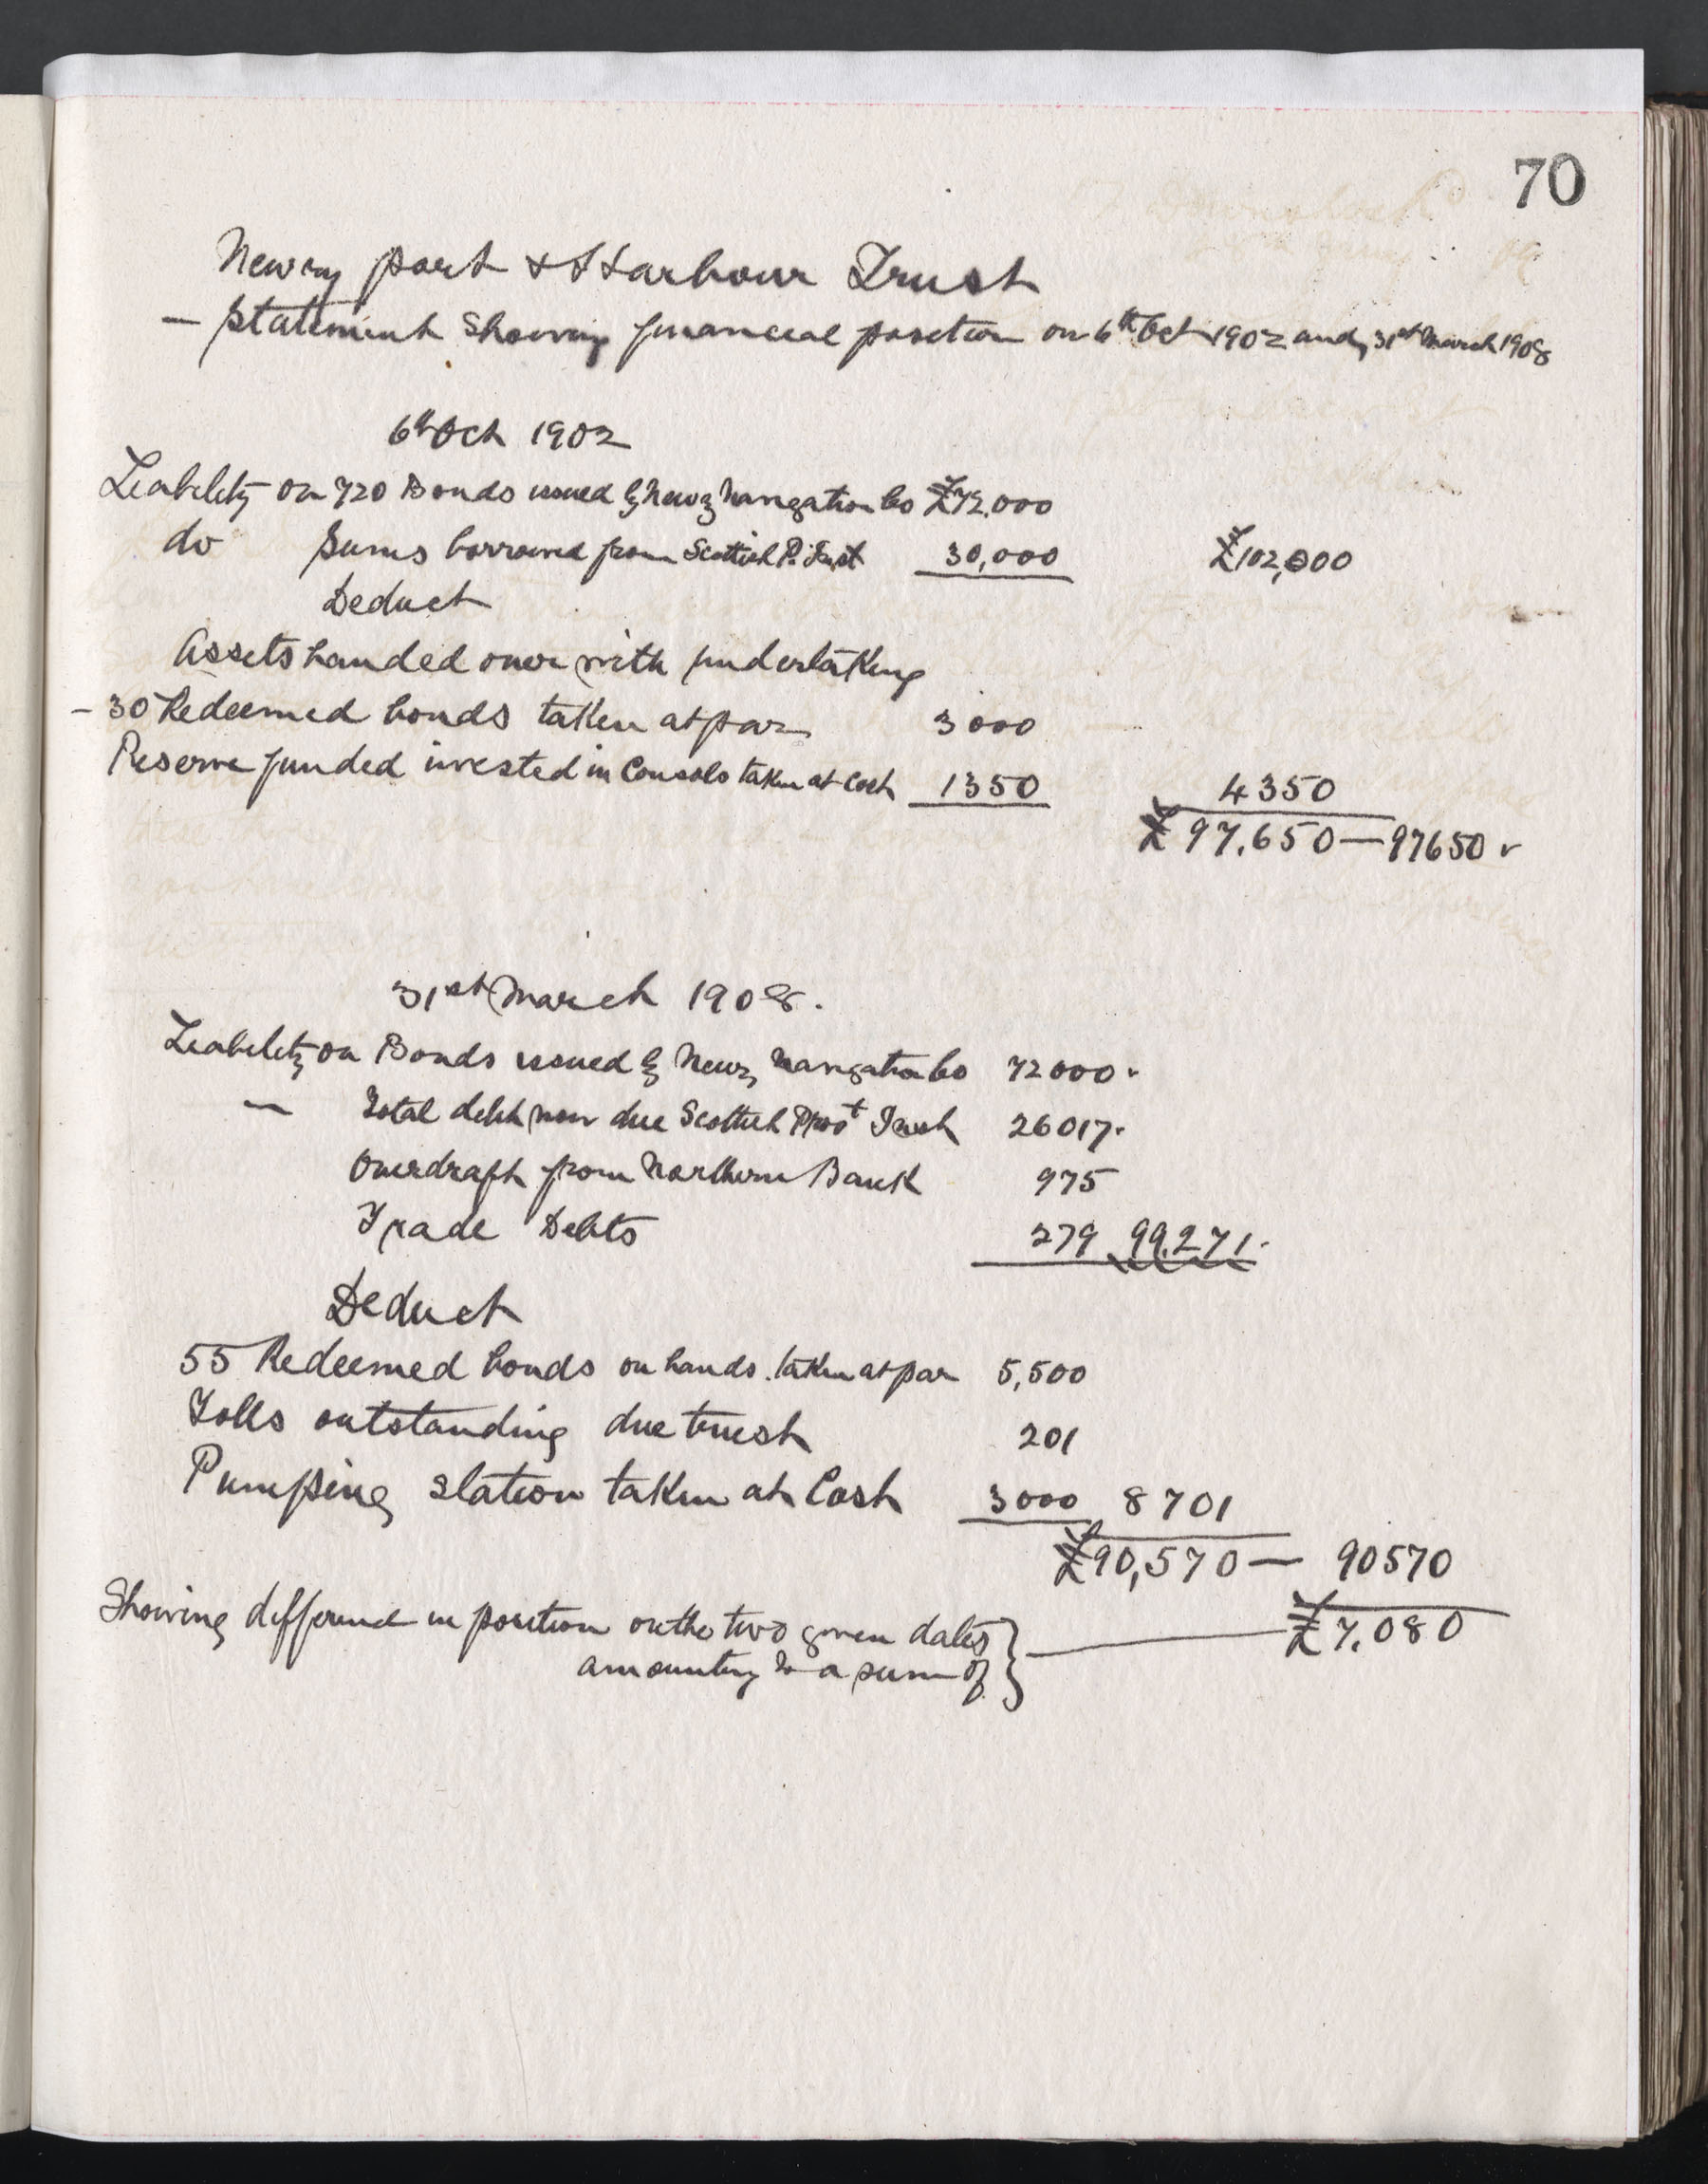 70
Newry port & Harbour Trust
— Statement Showing financial position on 6th Oct 1902 and 31st March 1908
6th Oct 1902
Liability on 720 Bonds issued by Newry Navigation Co £72.000
do Sums borrowed from Scottish P. Inst 30,000 £102,000
Deduct
Assets handed over with undertaking
– 30 Redeemed bonds taken at par 3000
Reserve funded invested in Consols taken at Cost 1350 4350
£97.650 — 97650
31st March 1908.
Liability on Bonds issued by Newry Navigation Co 72000
— Total debt now due Scottish Provt Inst 26017
Overdraft from Northern Bank 975
Trade Debts 279 99.271
Deduct
55 Redeemed bonds on hands taken at par 5,500
Tolls outstanding due trust 201
Pumping Station taken at Cost 3000 8701
£90,570 — 90570
Showing difference in position on the two given dates
amounting to a sum of } — £7.080